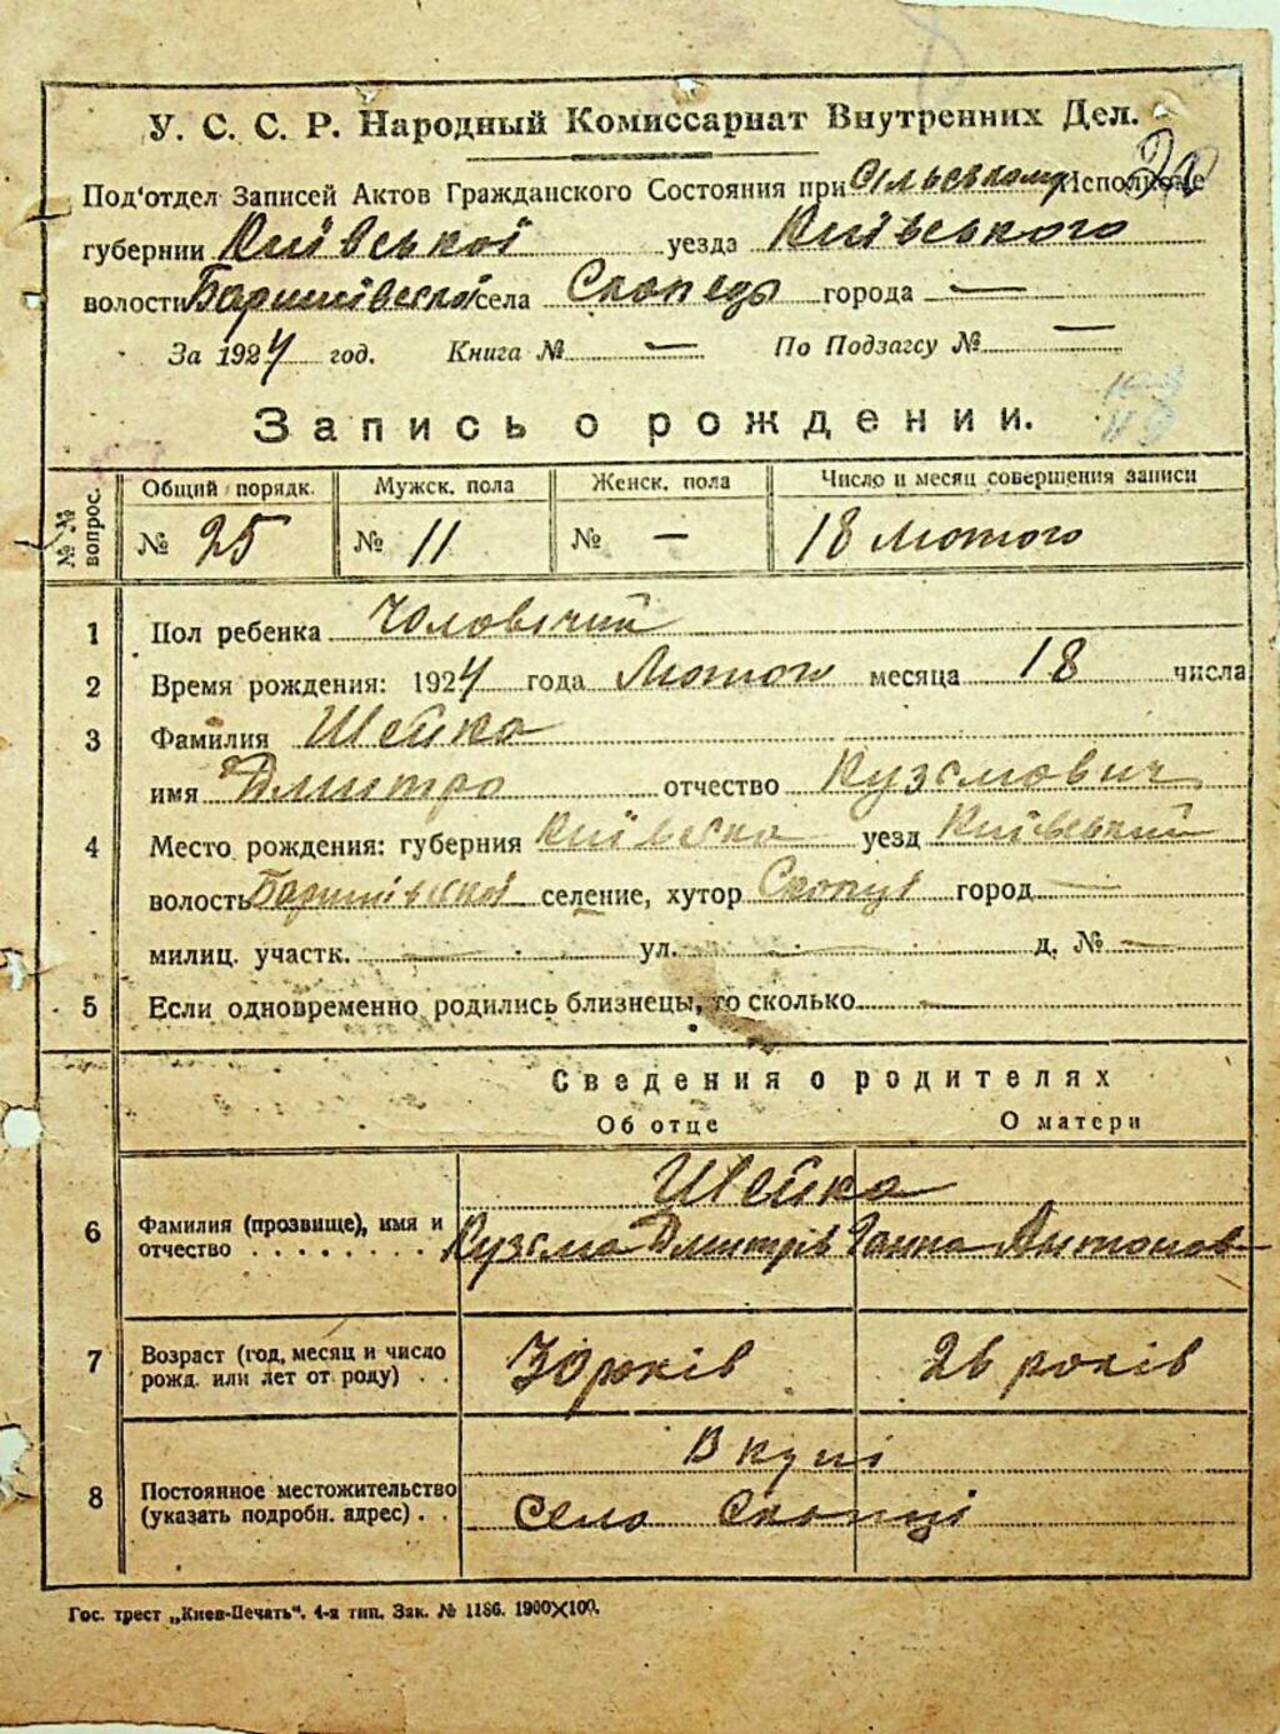 У. С. С. Р. Народный Комиссариат Внутренних Дел.
Под'отдел Записей Актов Гражданского Состояния при Сільському Исполкоме
губернии Київської уезда Київського
волости Баришівської села Скопців города —
За 1924 год. Книга № — По Подзагсу № —
Запись о рождении.
№ № вопрос. Общий порядк. Мужск. пола Женск. пола Число и месяц совершения записи
№ 25 № 11 № — 18 лютого
1 Пол ребенка Чоловічий
2 Время рождения: 1924 года Лютого месяца 18 числа
3 Фамилия Шейко
имя Дмитро отчество Кузьмович
4 Место рождения: губерния Київська уезд Київський
волость Баришівської селение, хутор Скопці город —
милиц. участк. — ул. — д. № —
5 Если одновременно родились близнецы, то сколько —
Сведения о родителях
Об отце О матери
Шейко
6 Фамилия (прозвище), имя и отчество . . . . . . . . Кузьма Дмитрів Ганна Антонов
7 Возраст (год, месяц и число рожд. или лет от роду) . . 30 років 26 років
Вкупі
8 Постоянное местожительство (указать подробн. адрес) . . Село Скопці
Гос. трест „Киев-Печать“. 4-я тип. Зак. № 1186. 1900×100.